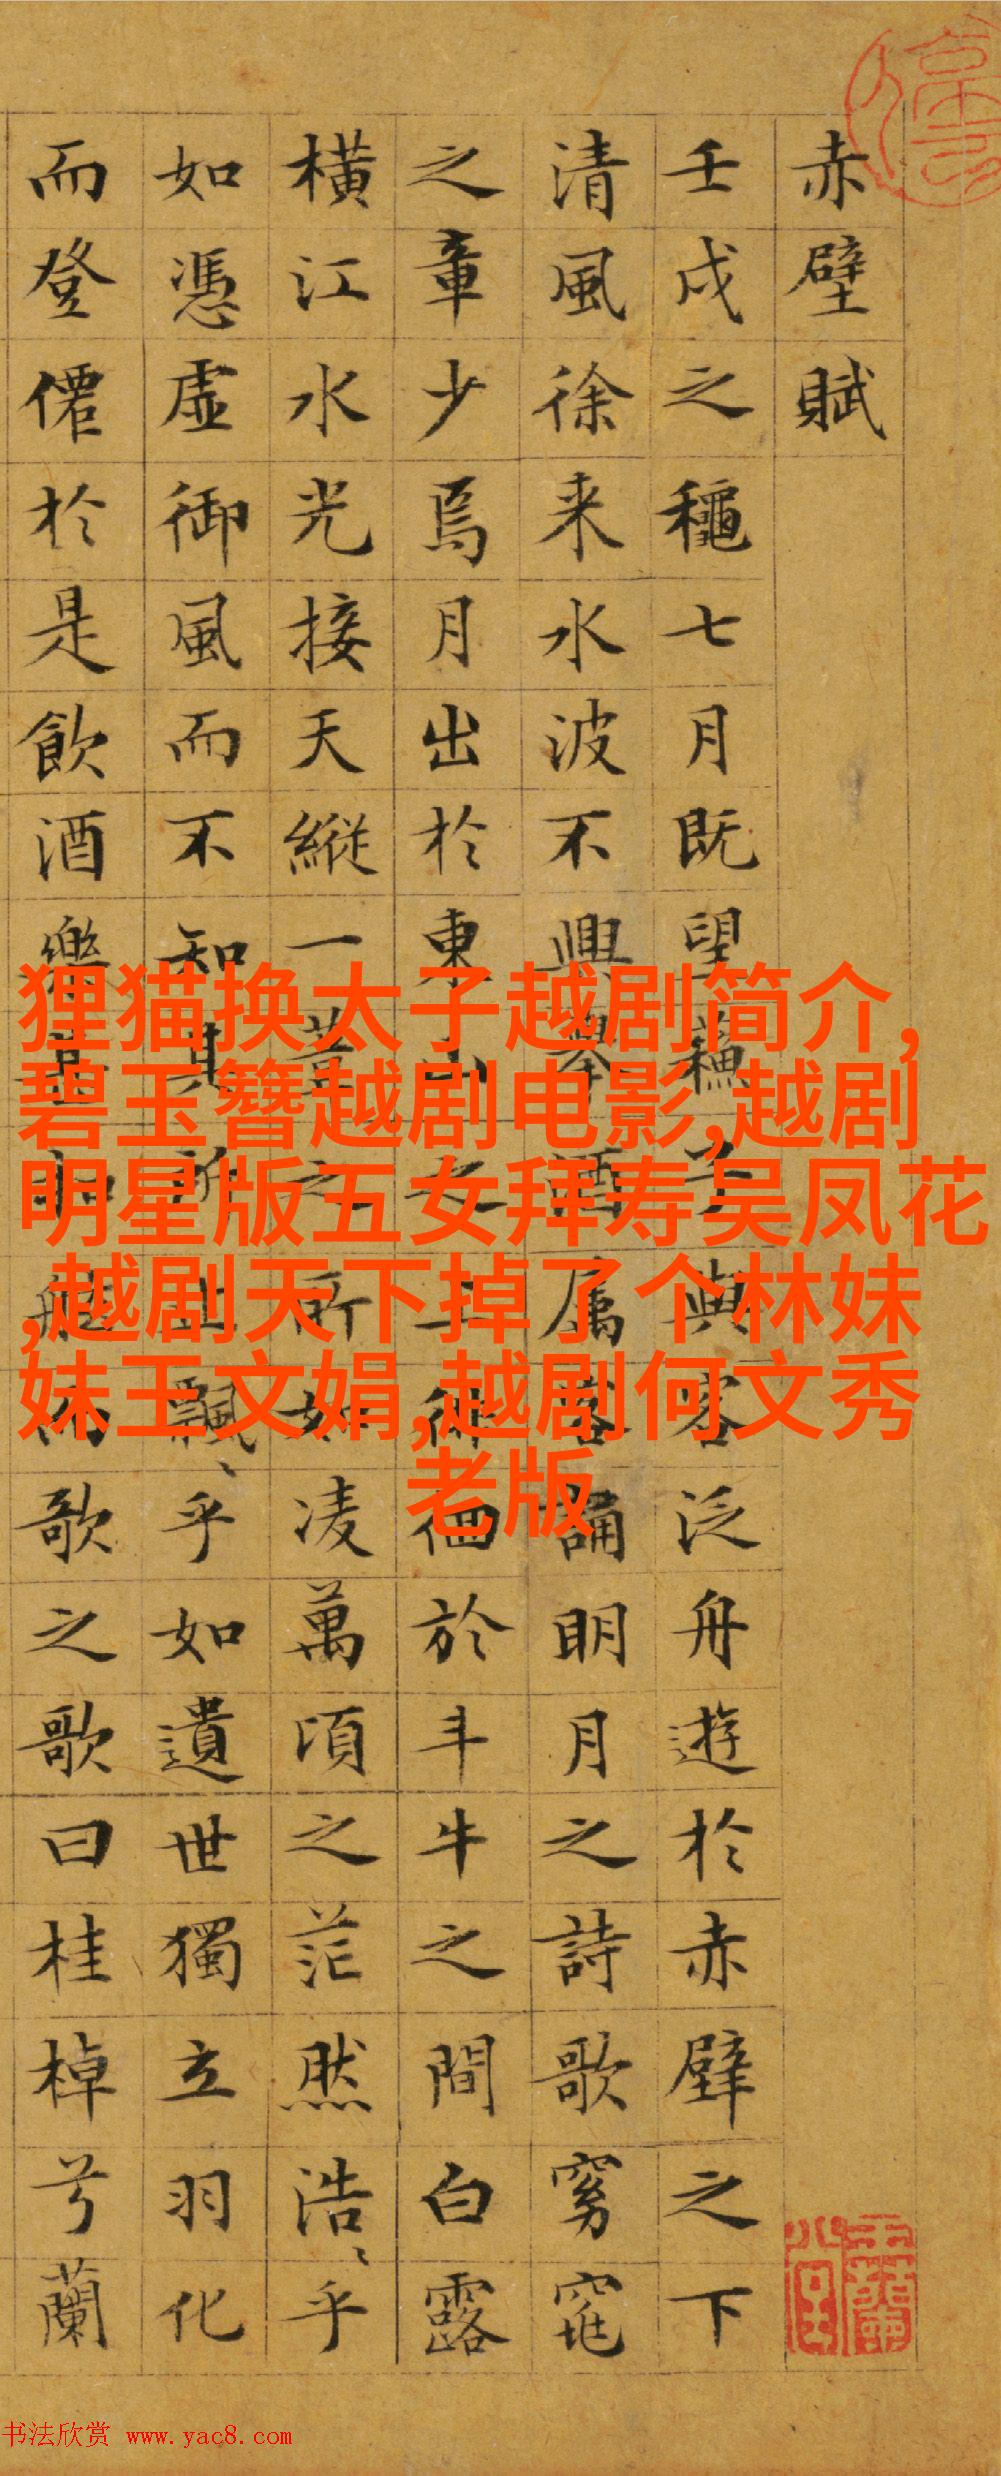 赤壁賦
壬戌之穐七月既望蘇子與客泛舟遊於赤壁之下
清風徐来水波不興舉酒属客誦明月之詩歌窈窕
之章少焉月出於東山之上徘徊於斗牛之間白露
橫江水光接天縱一葦之所如凌萬頃之茫然浩〻乎
如憑虛御風而不知其所止飄〻乎如遺世獨立羽化
而登僊於是飲酒樂甚扣舷而歌之歌曰桂棹兮蘭
狸猫换太子越剧简介,
碧玉簪越剧电影,越剧
明星版五女拜寿吴凤花
,越剧天下掉了个林妹
妹王文娟,越剧何文秀
老版
书法欣赏 www.yac8.com